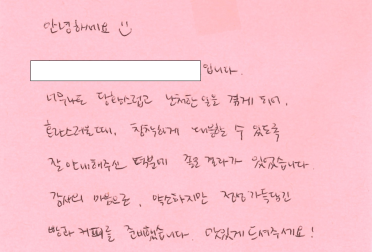 안녕하세요
입니다.
너무나도 당황스럽고 난처한 일을 겪게 되어,
혼란스러울때, 침착하게 대응할 수 있도록
잘 안내해주신 덕분에 좋은 결과가 있었습니다.
감사의 마음으로, 약소하지만 정성 가득담긴
빵과 커피를 준비했습니다. 맛있게 드셔주세요!